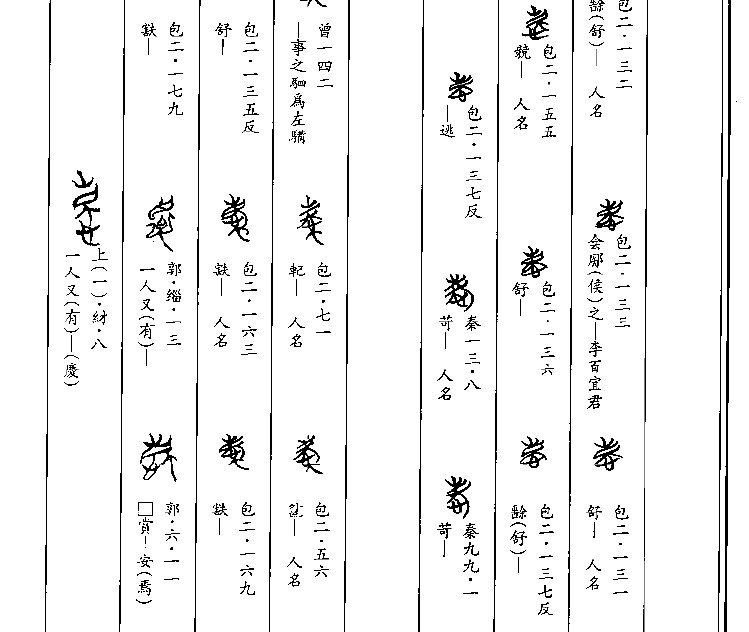 包二·一三二
䣄(舒)— 人名
包二·一三三
会郹(侯)之—李百宜君
包二·一三一
舒— 人名
包二·一五五
競— 人名
包二·一三六
舒—
包二·一三七反
(舒)—
包二·一三七反
—逃
秦一三·八
苛— 人名
秦九九·一
苛—
曾一四二
—事之駟為左驂
包二·七一
軋— 人名
包二·五六
— 人名
包二·一三五反
舒—
包二·一六三
人名
包二·一六九
包二·一七九
郭·緇·一三
一人又(有)—
郭·六·一一
□賞—安(焉)
上(一)·紂·八
一人又(有)—(慶)